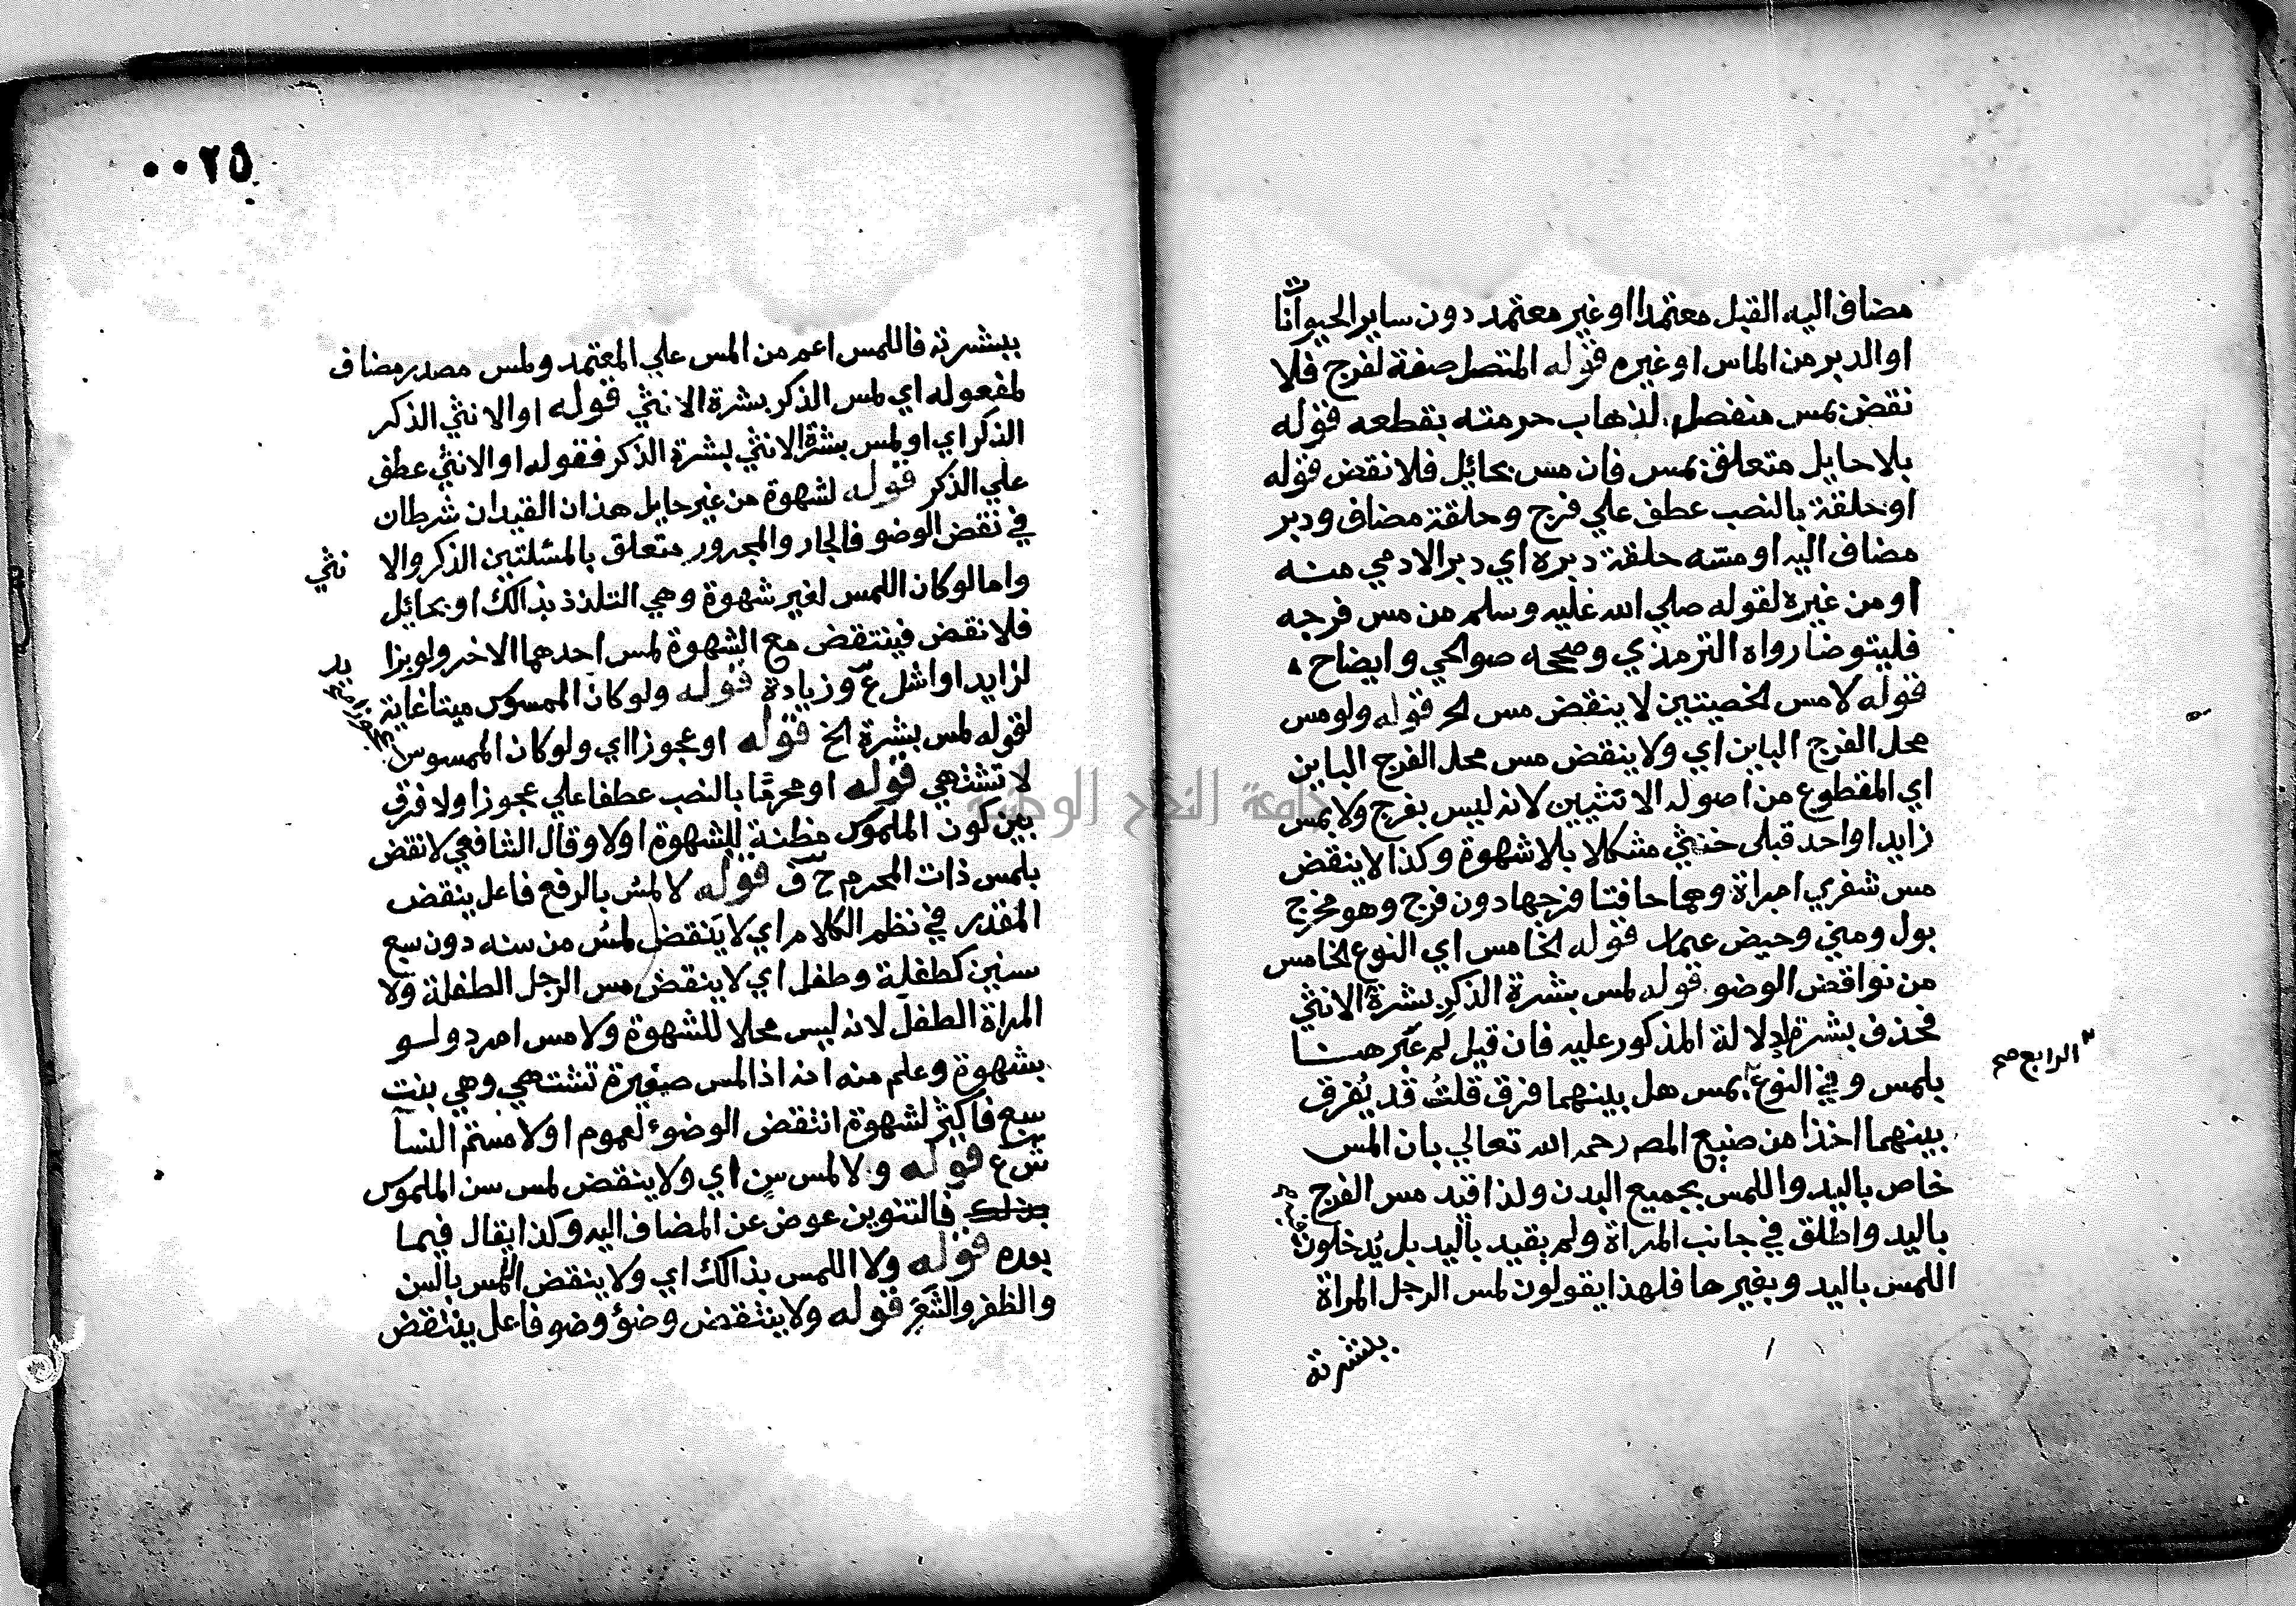 مضاف اليه القبل معتمدا او غير معتمد دون ساير الحيوانات
او الدبر من الماس او غيره قوله المتصل صفة لفرج فلا
نقض بمس منفصل لذهاب حرمته بقطعه قوله
بلا حايل متعلق بمس فان مس بحائل فلا نقض قوله
او حلقة بالنصب عطف علي فرج وحلقة مضاف ودبر
مضاف اليه او مسه حلقة دبره اي دبر الادمي منه
او من غيره لقوله صلي الله عليه وسلم من مس فرجه
فليتوضا رواه الترمذي وصححه صوالحي وايضاح
قوله لا مس الخصيتين لا ينقض مس الخ قوله ولو مس
محل الفرج الباين اي ولا ينقض مس محل الفرج الباين
اي المقطوع من اصوله الانثيين لانه ليس بفرج ولا بمس
زايد او احد قبلى خنثي مشكلا بلا شهوة وكذا لا ينقض
مس شفري امراة وهما حافتا فرجها دون فرج وهو مخرج
بول ومني وحيض قوله الخامس اي النوع الخامس
من نواقض الوضو قوله لمس بشرة الذكر بشرة الانثي
فحذف بشرة لدلالة المذكور عليه فان قيل لم عبر هنا
بلمس وفي النوع بمس هل بينهما فرق قلتُ قد يُفرق
الرابع صح
بينهما اخذا من صنيع المص رحمه الله تعالي بان المس
خاص باليد واللمس بجميع البدن ولذا قيد مس الفرج
باليد واطلق في جانب المراة ولم يقيد باليد بل يُدخلون
اللمس باليد وبغيرها فلهذا يقولون لمس الرجل المراة
ببشرته
٠٠٢٥
ببشرته فاللمس اعم من المس علي المعتمد ولمس مصدر مضاف
لمفعوله اي لمس الذكر بشرة الانثي قوله او الانثي الذكر
الذكر اي او لمس بشرة الانثي بشرة الذكر فقوله او الانثي عطف
علي الذكر قوله لشهوة من غير حايل هذان القيدان شرطان
في نقض الوضو فالجار والمجرور متعلق بالمسئلتين الذكر والانثي
واما لو كان اللمس لغير شهوة وهي التلذذ بذالك او بحائل
فلا نقض فينتقض مع الشهوة لمس احدهما الاخر ولو بزايد
لزايد او اشل ع وزيادة قوله ولو كان الممسوس ميتا غاية
لقوله لمس بشرة الخ قوله او عجوزا اي ولو كان الممسوس
لا تشتهي قوله او محرمًا بالنصب عطفا علي عجوزا ولا فرق
بين كون الملموس مظنة للشهوة او لا وقال الشافعي لا نقض
بلمس ذات المحرم ح ف قوله لا لمسُ بالرفع فاعل ينقض
المقدر في نظم الكلام اي لا ينقض لمسُ من سنه دون سبع
سنين كطفلة وطفل اي لا ينقض مس الرجل الطفلة ولا
المراة الطفل لانه ليس محلا للشهوة ولا مس امرد ولو
بشهوة وعلم منه انه اذا لمس صغيرة تشتهي وهي بنت
سبع فاكثر لشهوة انتقض الوضوء لعموم او لامستم النسآ
ش ع قوله ولا لمس سن اي ولا ينقض لمس سن الملموس
فالتنوين عوض عن المضاف اليه وكذا يقال فيما
بعده قوله ولا اللمس بذالك اي ولا ينقض اللمس بالسن
والظفر والشعر قوله ولا ينتقض وضؤ وضو فاعل ينتقض